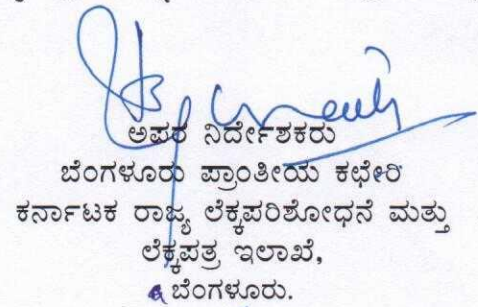 ಅಪರ ನಿರ್ದೇಶಕರು
ಬೆಂಗಳೂರು ಪ್ರಾಂತೀಯ ಕಛೇರಿ
ಕರ್ನಾಟಕ ರಾಜ್ಯ ಲೆಕ್ಕಪರಿಶೋಧನೆ ಮತ್ತು
ಲೆಕ್ಕಪತ್ರ ಇಲಾಖೆ,
ಬೆಂಗಳೂರು.